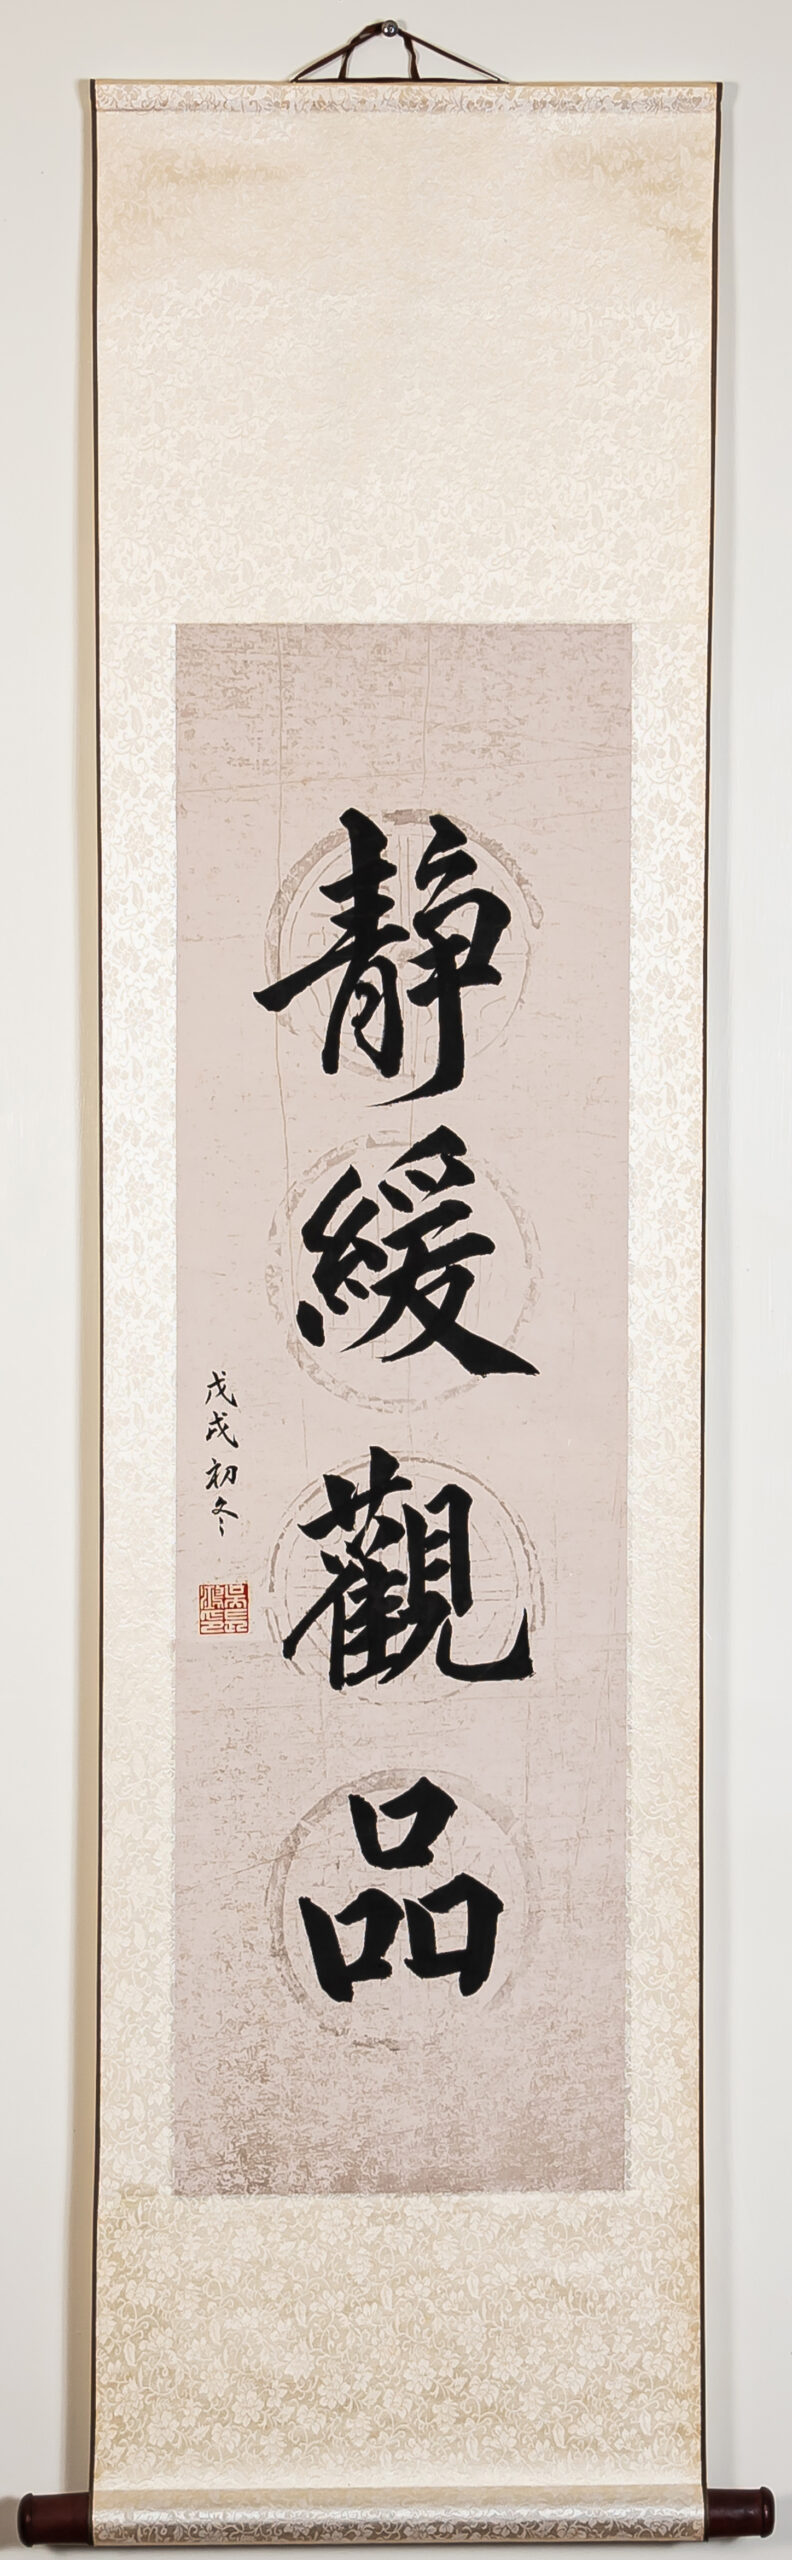 静緩觀品
戊戌初冬